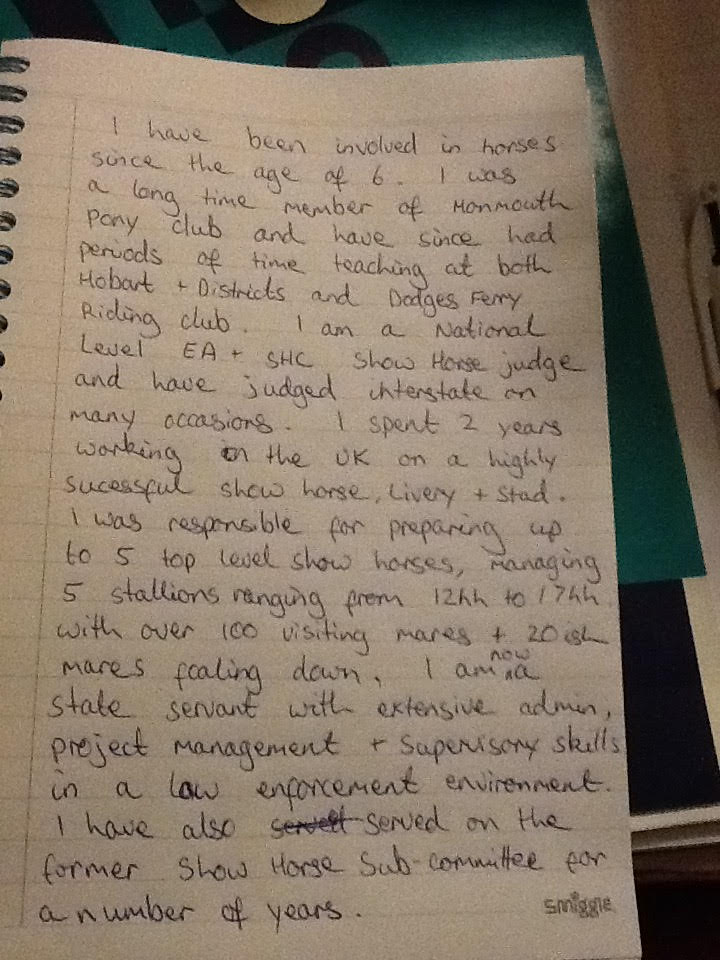 I have been involved in horses
since the age of 6. I was
a long time member of Monmouth
Pony club and have since had
periods of time teaching at both
Hobart + Districts and Dodges Ferry
Riding club. I am a National
Level EA + SHC Show Horse judge
and have judged interstate on
many occasions. I spent 2 years
working in the UK on a highly
sucessful show horse, Livery + Stud.
I was responsible for preparing up
to 5 top level show horses, managing
5 stallions ranging from 12hh to 17hh
with over 100 visiting mares + 20ish
mares foaling down. I am now a
state servant with extensive admin,
project management + supervisory skills
in a law enforcement environment.
I have also served on the
former Show Horse Sub-committee for
a number of years.
smiggle